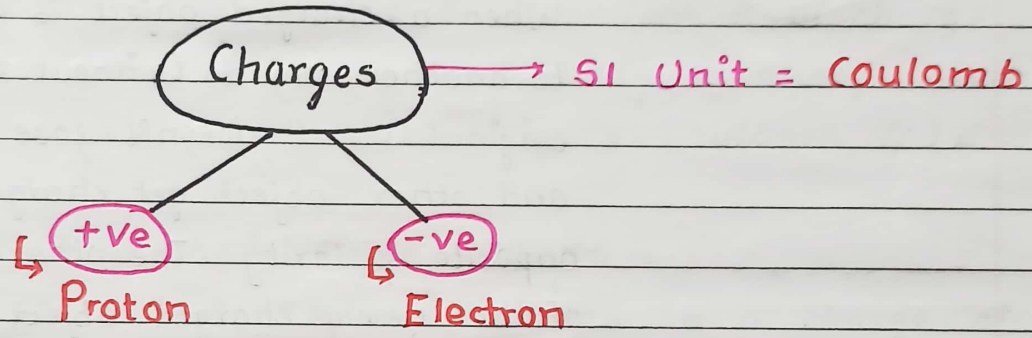 Charges → SI Unit = Coulomb
+ve -ve
↳ Proton ↳ Electron